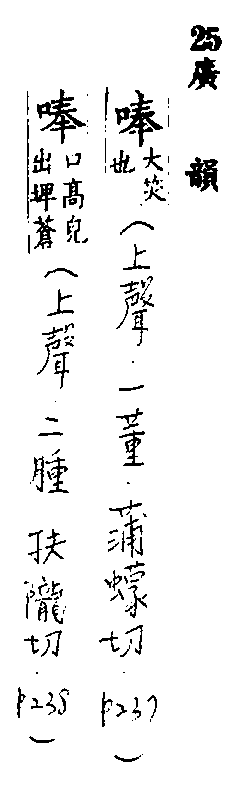 25廣韻
唪大笑也(上聲.一董.蒲蠓切.P237)
唪口高皃出埤蒼(上聲.二腫 扶隴切.P238)